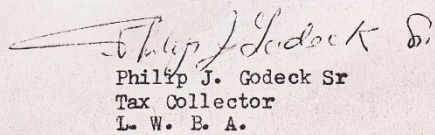 Philip J Godeck Sr.
Philip J. Godeck Sr
Tax Collector
L. W. B. A.